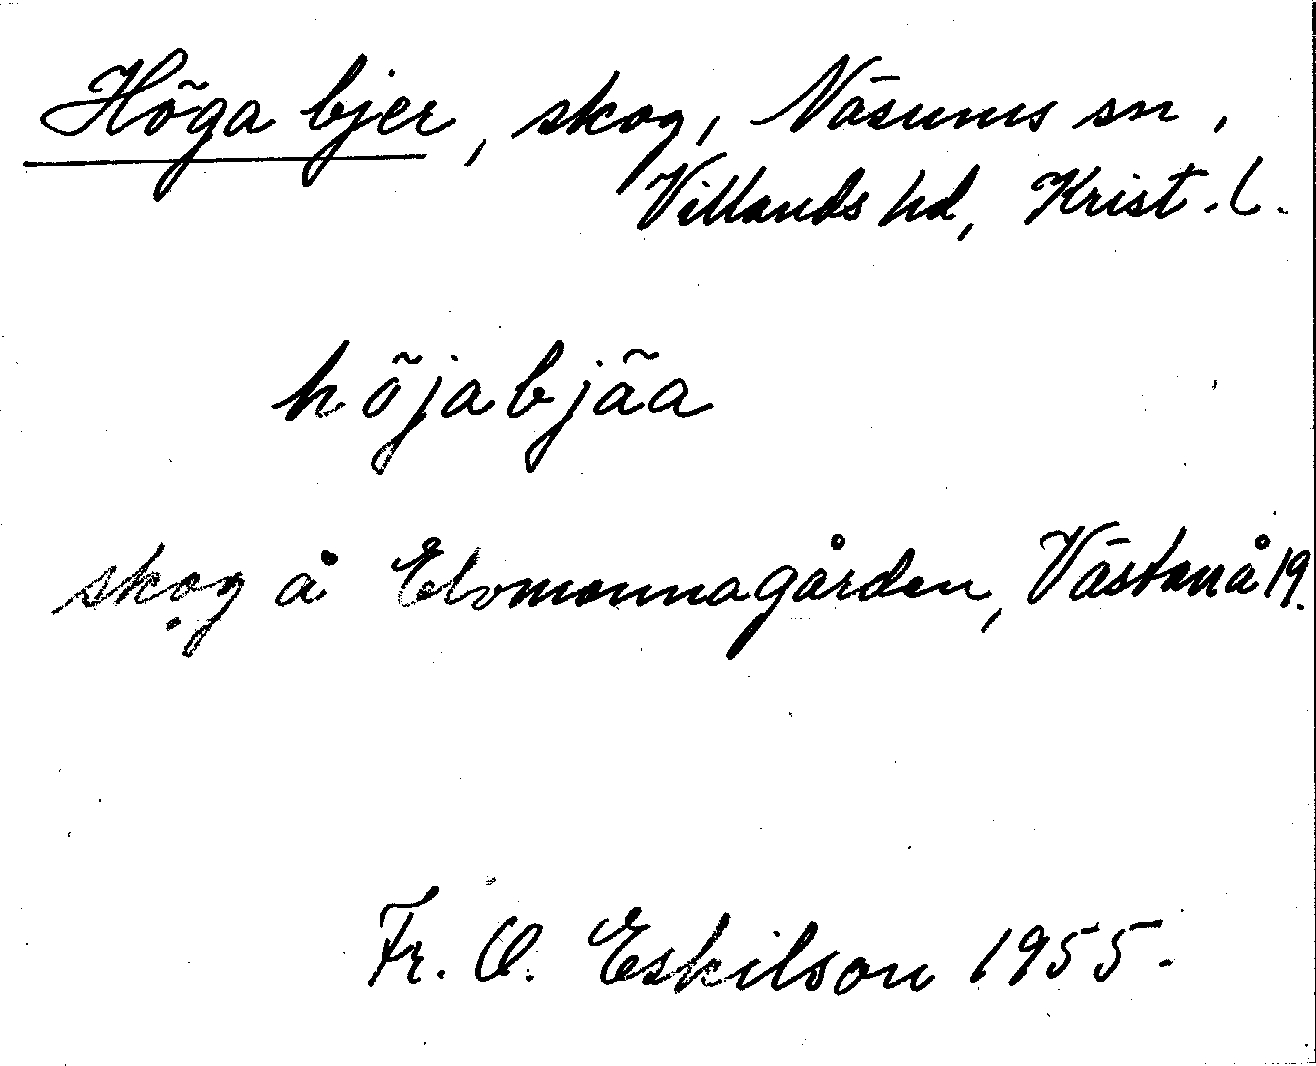 Höga bjer, skog, Näsums sn,
Villands hd, Krist. l.
höjabjäa
skog å Elvomannagården, Västanå 19.
Fr. O. Eskilson 1955.